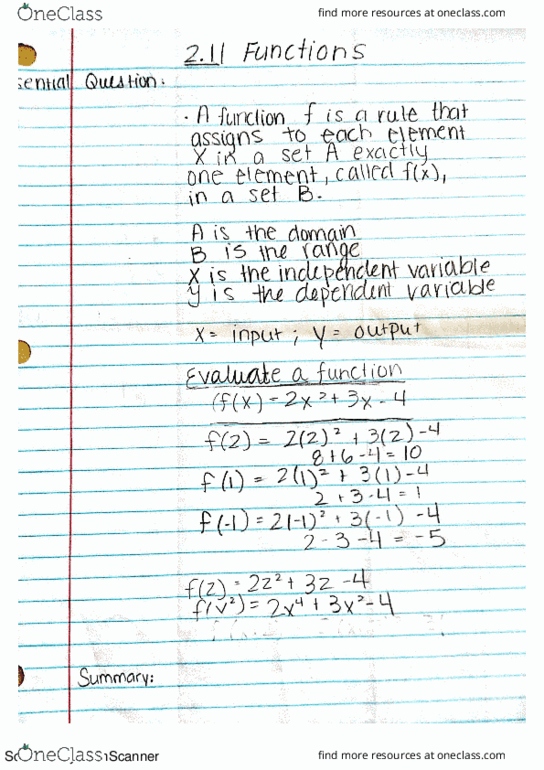 OneClass
find more resources at oneclass.com
2.11 Functions
sential Question:
· A function f is a rule that
assigns to each element
X in a set A exactly
one element, called f(x),
in a set B.
A is the domain
B is the range
X is the independent variable
y is the dependent variable
X = input ; Y = output
Evaluate a function
(f(x) = 2x² + 3x - 4
f(2) = 2(2)² + 3(2) - 4
8 + 6 - 4 = 10
f(1) = 2(1)² + 3(1) - 4
2 + 3 - 4 = 1
f(-1) = 2(-1)² + 3(-1) - 4
2 - 3 - 4 = -5
f(z) = 2z² + 3z - 4
f(x²) = 2x⁴ + 3x² - 4
Summary:
OneClass
Scanner
find more resources at oneclass.com